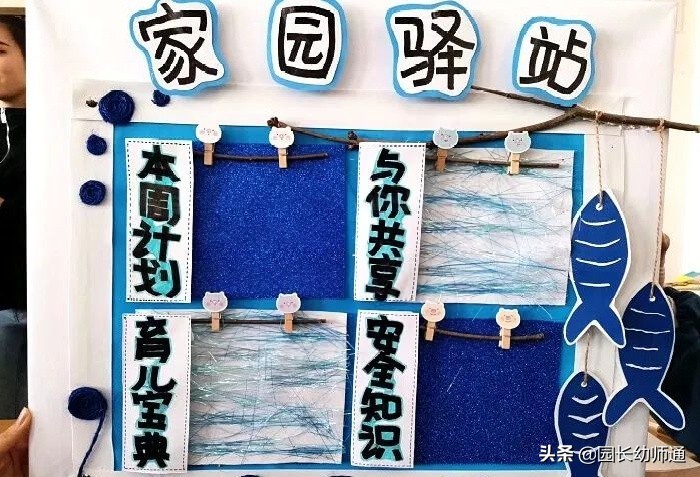 家园驿站
本周计划
与你共享
育儿宝典
安全知识
头条 @园长幼师通